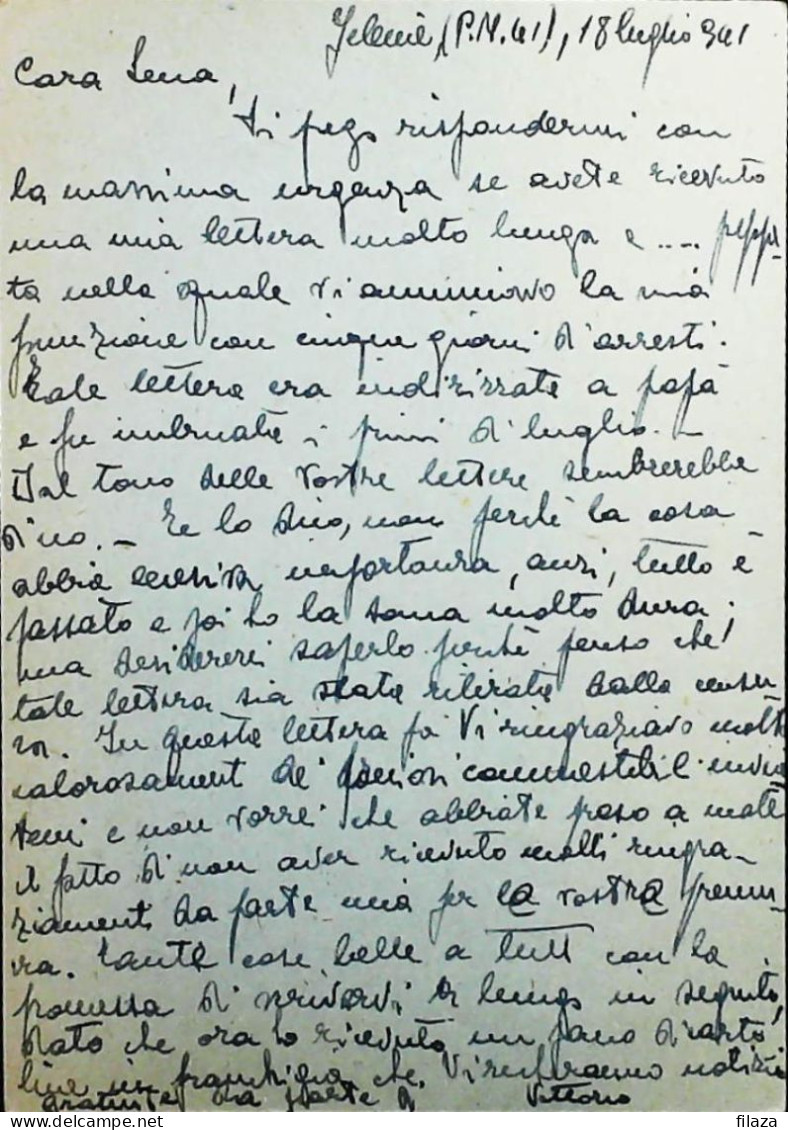 Jelenie (P.M. 41), 18 luglio 941
Cara Lena,
Ti prego rispondermi con
la massima urgenza se avete ricevuto
una mia lettera molto lunga e ....
ta nella quale vi annunciavo la mia
punizione con cinque giorni d'arresti.
Tale lettera era indirizzata a papà
e fu imbucata i primi di luglio. -
Dal tono delle vostre lettere sembrerebbe
di no. - Te lo dico, non perché la cosa
abbia eccessiva importanza, anzi, tutto è
passato e poi ho la
ma desidererei saperlo perché penso che
tale lettera sia stata ritirata dalla censu-
ra. In questa lettera poi Vi ringraziavo molto
calorosament de' commestibili invia
temi e non vorrei che abbiate preso a male
il fatto di non aver ricevuto molti ringra-
ziamenti da parte mia per la vostra premu-
ra. Tante cose belle a tutti con la
promessa di scrivervi a lungo in seguito,
dato che ora ho ricevuto un pacco di carto
line in franchigia che Vi notizie
gratuite da parte di Vittorio
filaza